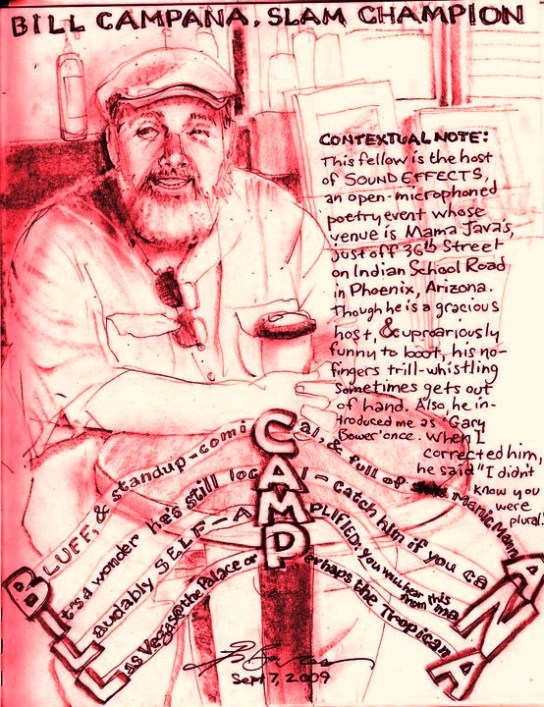 BILL CAMPANA, SLAM CHAMPION
CONTEXTUAL NOTE:
This fellow is the host
of SOUND EFFECTS,
an open-microphoned
poetry event whose
venue is Mama Java's,
just off 36th Street
on Indian School Road
in Phoenix, Arizona.
Though he is a gracious
host, & uproariously
funny to boot, his no-
fingers trill-whistling
sometimes gets out
of hand. Also, he in-
troduced me as "Gary
Bower" once. When I
corrected him,
he said "I didn't
know you
were
plural."
BLUFF, & standup-comiCal, & full of Manic MannA
It's a wonder he's still locAl — catch him if you caN
Laudably SELF-AMPLIFIED: You will hear this from ma
Las Vegas@the Palace or Perhaps the TropicanA
Sept 7, 2009